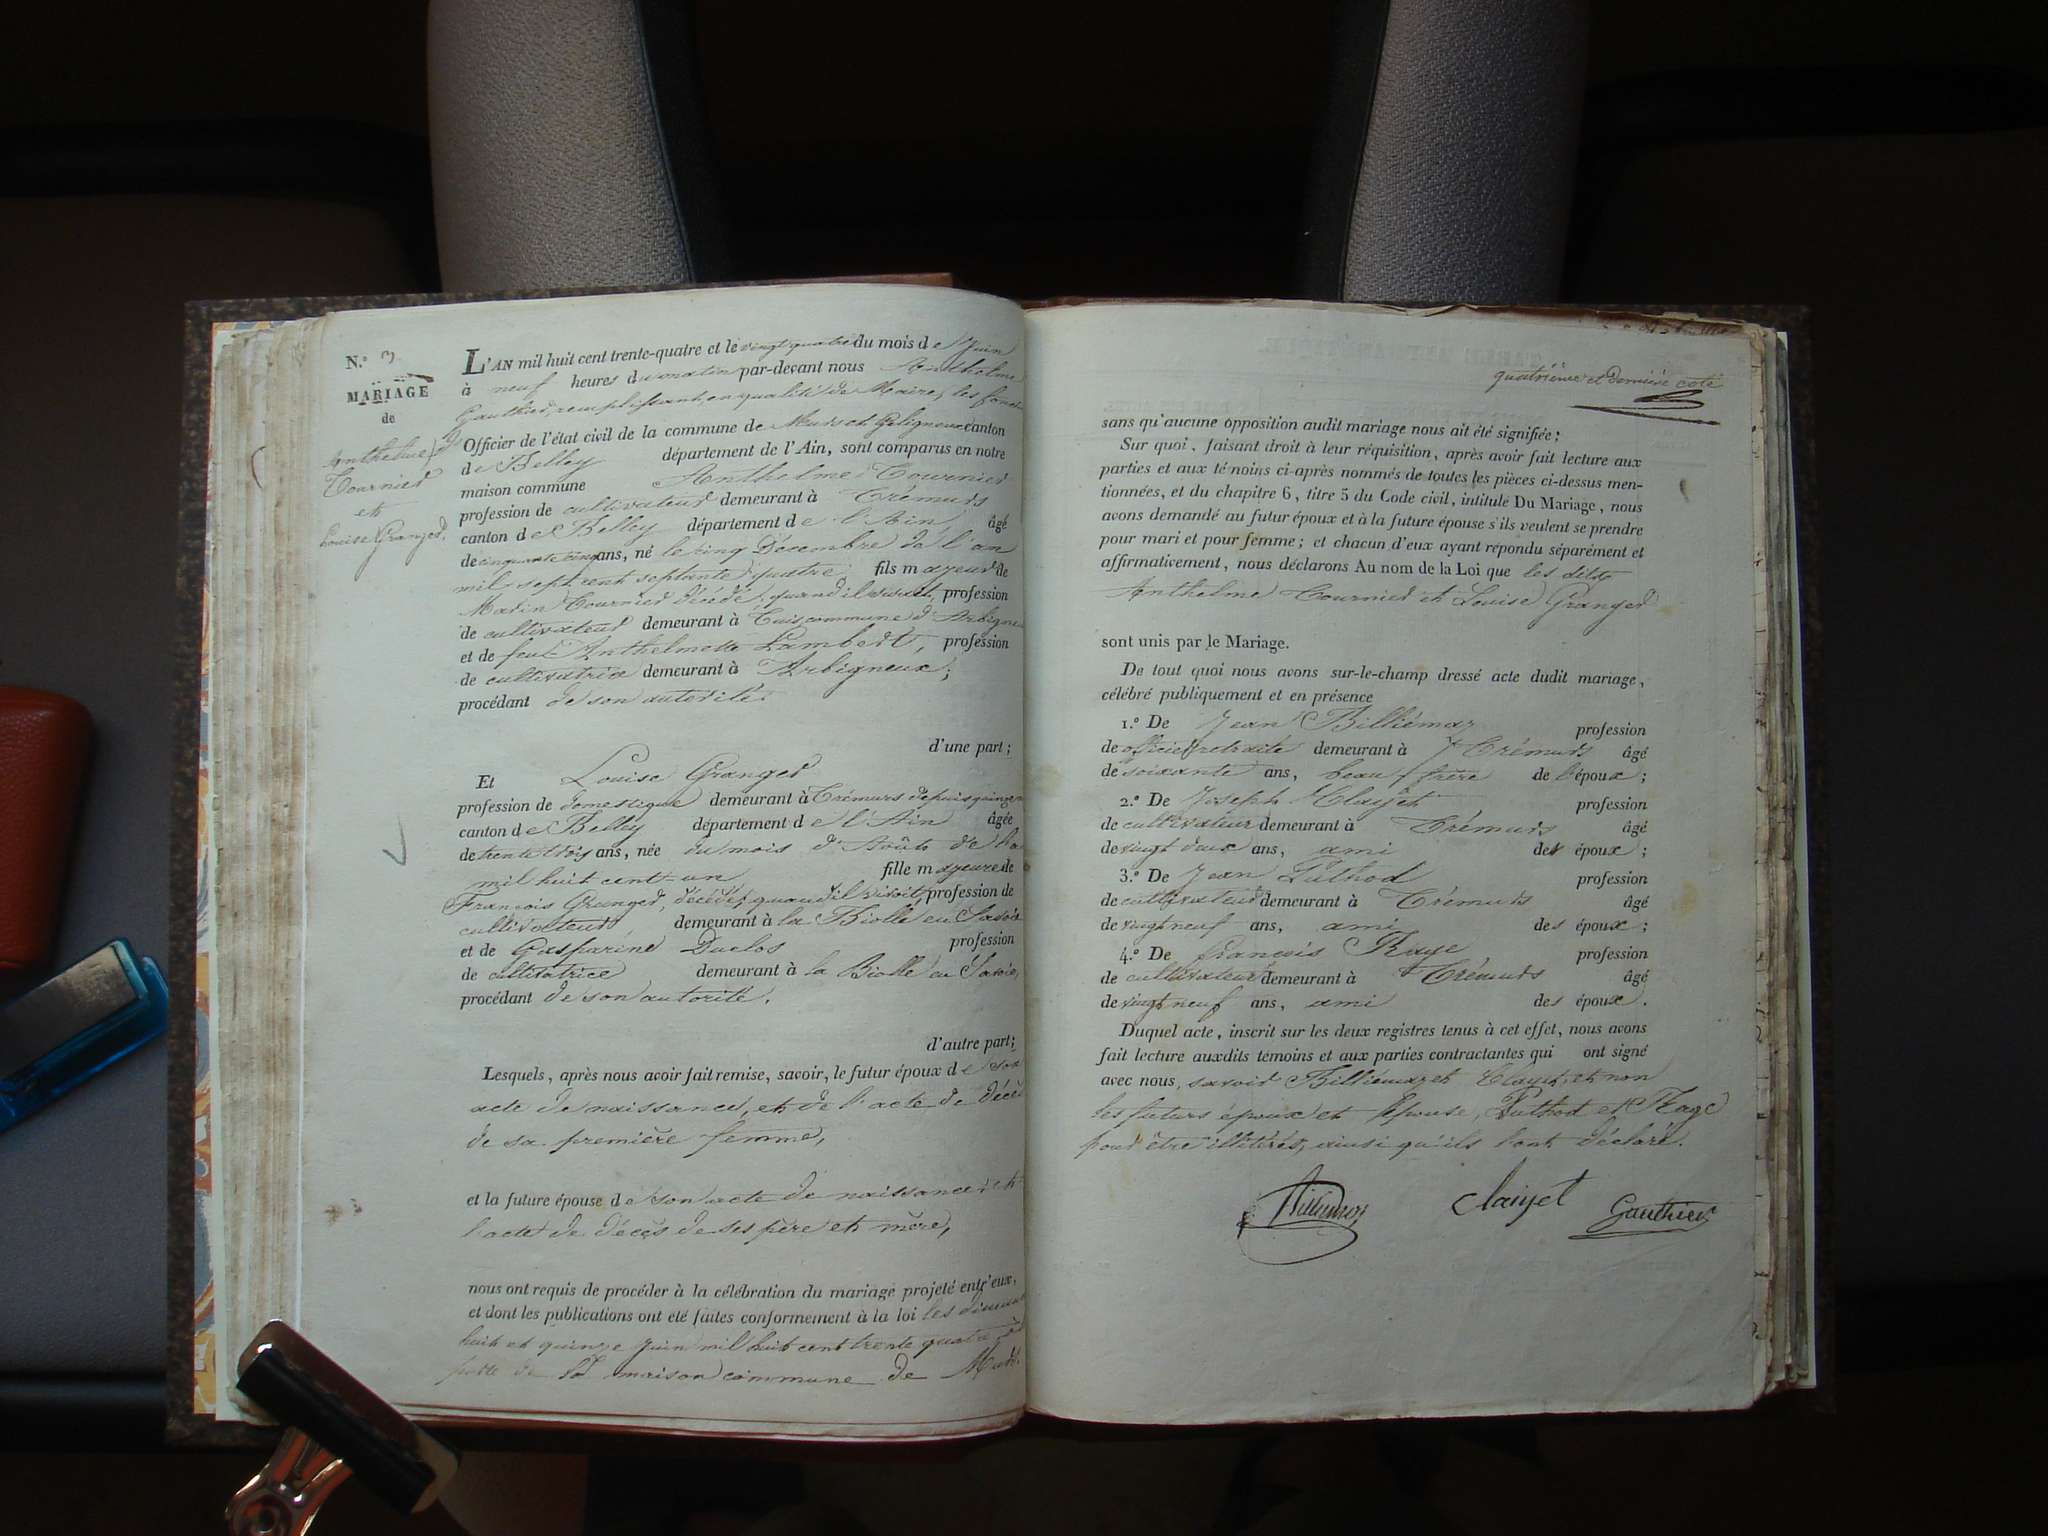 N.º 3
MARIAGE
de
Anthelme
Tournier
et
Louise Granger.
L'AN mil huit cent trente-quatre et le vingt quatre du mois de Juin
à neuf heures du matin par-devant nous Anthelme
Gauthier, remplissant, en qualité de Maire, les fonct
Officier de l'état civil de la commune de Murs et Geligneux canton
de Belley département de l'Ain, sont comparus en notre
maison commune Anthelme Tournier
profession de cultivateur demeurant à Crémurs
canton de Belley département de l'Ain âgé
de cinquante cinq ans, né le cinq Décembre de l'an
mil sept cent septante quatre fils mayeur de
Marin Tournier décédé, quand il vivait, profession
de cultivateur demeurant à Cuis commune d'Arbigneu
et de feue Anthelmette Lambert, profession
de cultivatrice demeurant à Arbigneux;
procédant de son autorité.
d'une part;
Et Louise Granger
profession de domestique demeurant à Crémurs depuis quinze
canton de Belley département de l'Ain âgée
de trente trois ans, née au mois d'Août de
mil huit cent un fille mayeure de
François Granger, décédé, quand il vivoit, profession de
cultivateur demeurant à la Biolle en Savoie
et de Gasparine Duclos profession
de cultivatrice demeurant à la Biolle en Savoie,
procédant de son autorité.
d'autre part;
Lesquels, après nous avoir fait remise, savoir, le futur époux de son
acte de naissance, et de l'acte de décès
de sa première femme,
et la future épouse de son acte de naissance et
l'acte de décès de ses père et mère,
nous ont requis de procéder à la célébration du mariage projeté entr'eux,
et dont les publications ont été faites conformément à la loi les diman
huit et quinze Juin mil huit cent trente quatre
porte de la maison commune de Murs.
quatrième et dernière cote
sans qu'aucune opposition audit mariage nous ait été signifiée;
Sur quoi, faisant droit à leur réquisition, après avoir fait lecture aux
parties et aux témoins ci-après nommés de toutes les pièces ci-dessus men-
tionnées, et du chapitre 6, titre 5 du Code civil, intitule Du Mariage, nous
avons demandé au futur époux et à la future épouse s'ils veulent se prendre
pour mari et pour femme; et chacun d'eux ayant répondu séparément et
affirmativement, nous déclarons Au nom de la Loi que les dits
Anthelme Tournier et Louise Granger
sont unis par le Mariage.
De tout quoi nous avons sur-le-champ dressé acte dudit mariage,
célébré publiquement et en présence
1.º De Jean Billiémaz profession
de officier retraité demeurant à Crémurs âgé
de soixante ans, beau frère de l'époux;
2.º De Joseph Clayet profession
de cultivateur demeurant à Crémurs âgé
de vingt deux ans, ami des époux;
3.º De Jean Puthod profession
de cultivateur demeurant à Crémurs âgé
de vingt neuf ans, ami des époux;
4.º De francois Rage profession
de cultivateur demeurant à Crémurs âgé
de vingt neuf ans, ami des époux.
Duquel acte, inscrit sur les deux registres tenus à cet effet, nous avons
fait lecture auxdits témoins et aux parties contractantes qui ont signé
avec nous, savoir Billiémaz et Clayet, et non
les futurs époux et épouse, Puthod et Rage
pour être illitérés, ainsi qu'ils l'ont déclaré.
Billiemaz Claiyet Gauthier